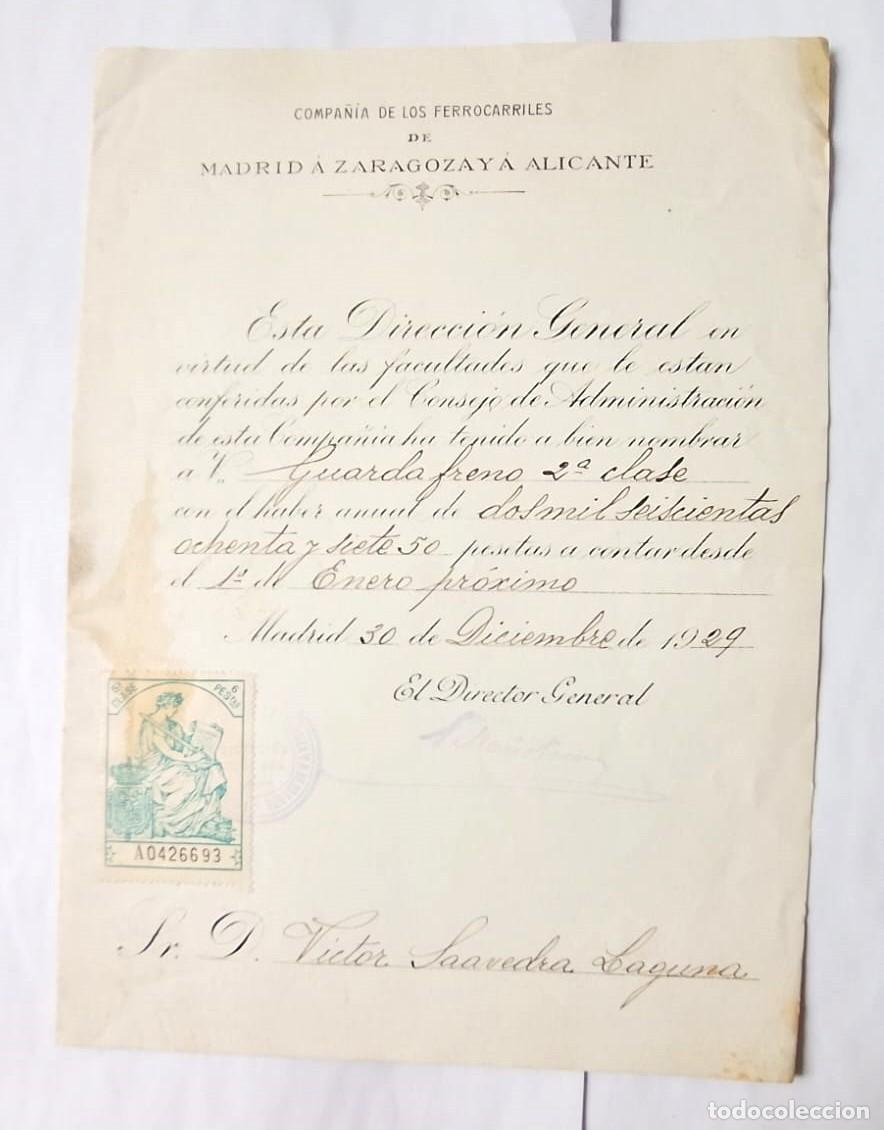 COMPAÑÍA DE LOS FERROCARRILES
DE
MADRID Á ZARAGOZA Y Á ALICANTE
Esta Dirección General en
virtud de las facultades que le estan
conferidas por el Consejo de Administración
de esta Compañia ha tenido a bien nombrar
a V. Guardafreno 2ª clase
con el haber anual de dosmil seiscientas
ochenta y siete 50 pesetas a contar desde
el 1º de Enero próximo
Madrid 30 de Diciembre de 1929
El Director General
8ª CLASE
6 PESETAS
A0426693
Sr. D. Victor Saavedra Laguna
todocoleccion